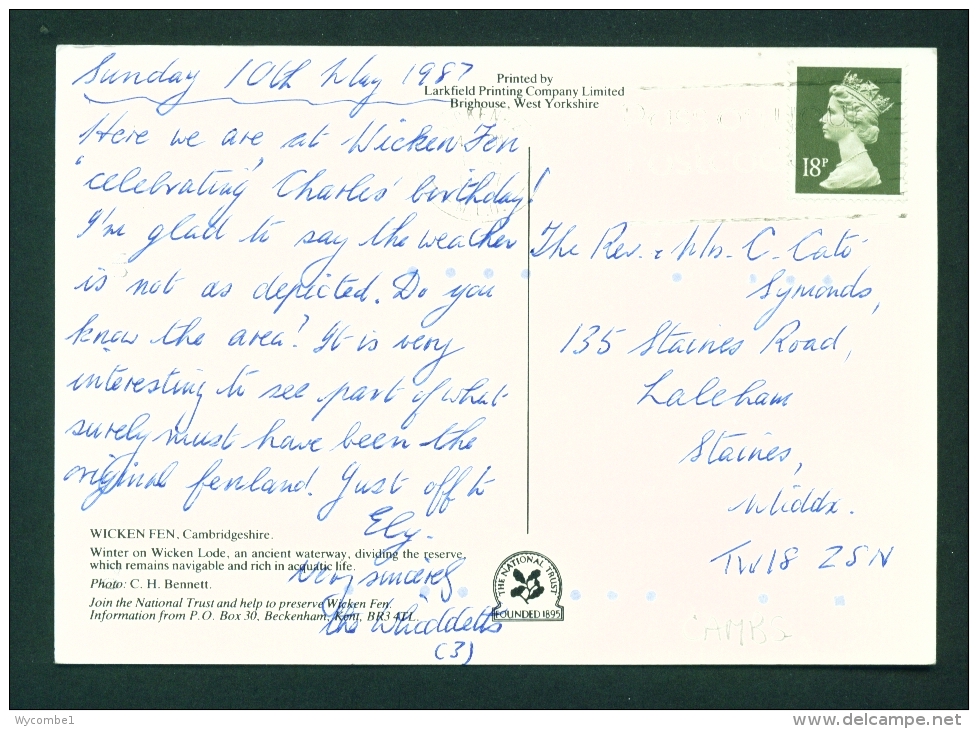 Sunday 10th May 1987
Printed by
Larkfield Printing Company Limited
Brighouse, West Yorkshire
18P
Here we are at Wicken Fen
'celebrating' Charles' birthday!
I'm glad to say the weather
is not as depicted. Do you
know the area? It is very
interesting to see part of what
surely must have been the
original fenland. Just off to
Ely.
Very sincerely
The Whiddetts
(3)
The Rev. & Mrs. C. Cato
Symonds,
135 Staines Road,
Laleham
Staines,
Middx.
TW18 2SN
WICKEN FEN, Cambridgeshire.
Winter on Wicken Lode, an ancient waterway, dividing the reserve,
which remains navigable and rich in acquatic life.
Photo: C. H. Bennett.
Join the National Trust and help to preserve Wicken Fen.
Information from P.O. Box 30, Beckenham, Kent, BR3 4TL.
THE NATIONAL TRUST
FOUNDED 1895
Wycombe1
www.delcampe.net